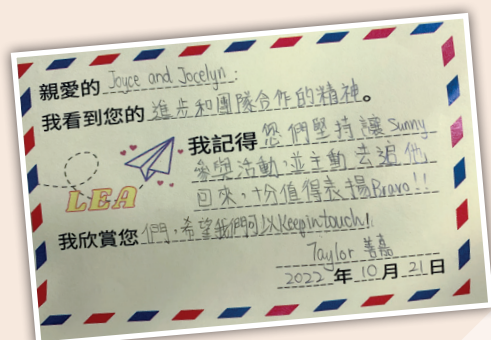 親愛的 Joyce and Jocelyn:
我看到您的 進步和團隊合作的精神。
我記得 您們堅持讓 Sunny
參與活動,並主動去追他
回來,十分值得表揚Bravo!!
LEA
我欣賞您 們,希望我們可以Keep in touch!
Taylor 善嘉
2022 年 10 月 21 日